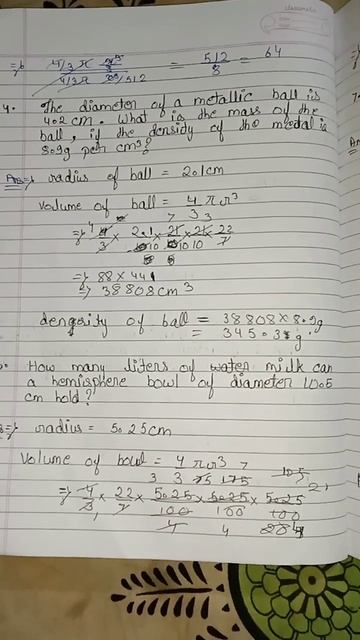 => 4/3 π r³ / 4/3 π 20/512 = 512/8 = 64
4. The diameter of a metallic ball is
4.2 cm. What is the mass of the
ball, if the density of the medal is
8.9g per cm³?
Ans=> radius of ball = 2.1cm
Volume of ball = 4/3 πr³
=> 4/3 × 2.1/10 × 21/10 × 21/10 × 22/7
=> 88 × 441
=> 38808cm³
dengority of ball = 38808 × 8.9g
= 345.39g.
How many liters of water milk can
a hemisphere bowl of diameter 10.5
cm hold?
=> radius = 5.25cm
Volume of bowl = 4/3 πr³
=> 4/3 × 22/7 × 5.25/100 × 5.25/100 × 5.25/100